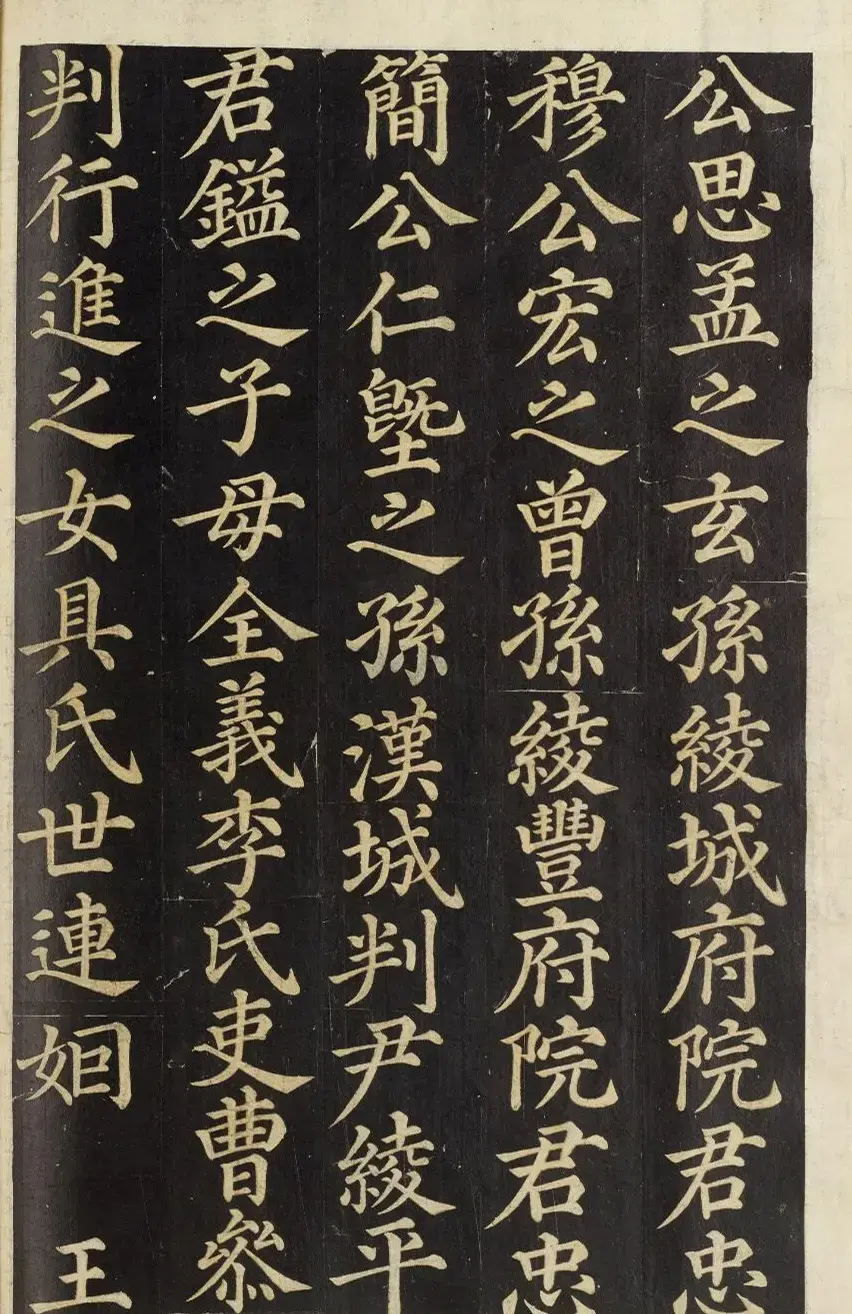 公思孟之玄孫綾城府院君忠
穆公宏之曾孫綾豐府院君忠
簡公仁塈之孫漢城判尹綾平
君鎰之子母全義李氏吏曹叅
判行進之女具氏世連姻 王